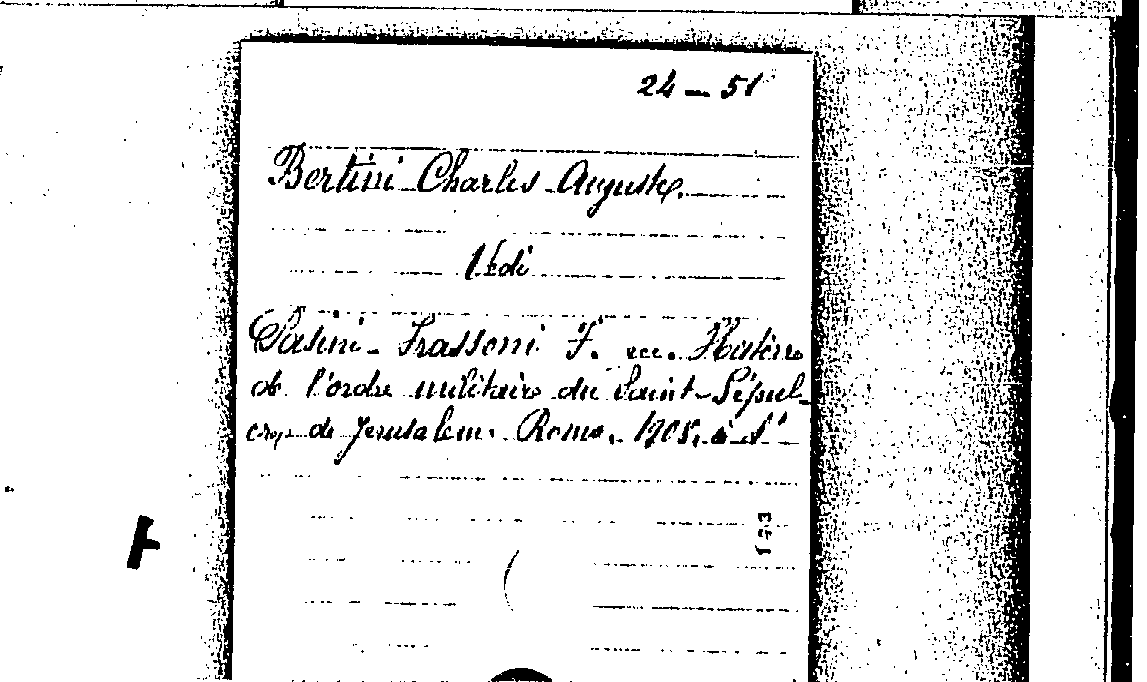 24 - 51
Bertini Charles Auguste.
Védi
Pasini-Frassoni F. Histoire
de l'ordre militaire du Saint-Sépul-
cre de Jerusalem. Rome. 1905. à S
193